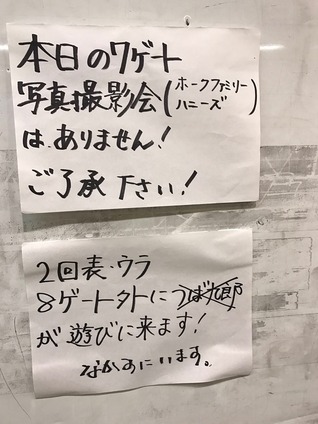 本日の7ゲート
写真撮影会(ホークファミリー
ハニーズ)
は、ありません!
ご了承下さい!
2回表・ウラ
8ゲート外につば九郎
が遊びに来ます!
なかあにいます。